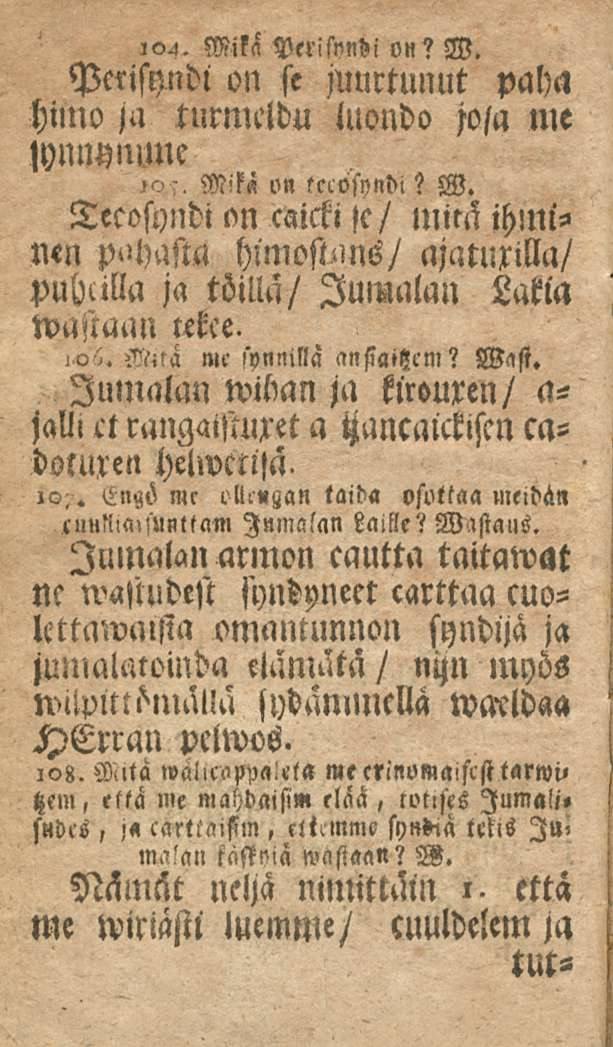 104. Mikä Perisyndi on? W.
Perisyndi on se juurtunut paha
himo ja turmeldu luondo josa me
synnymme
105. Mikä on tecosyndi? W.
Tecosyndi on caicki se/ mitä ihmi=
nen pahasta himostans/ ajatuxilla/
puheilla ja töillä/ Jumalan Lakia
wastaan tekee.
106. Mitä me synnillä ansaitzem? Wast.
Jumalan wihan ja kirouxen/ a=
jalliset rangaistuxet ja ijancaickisen ca=
dotuxen helwetisä.
107. Engö me ollengan taida osottaa meidän
cuuliaisuttam Jumalan Laille? Wastaus.
Jumalan armon cautta taitawat
ne wastudest syndyneet carttaa cuo=
lettawaista omantunnon syndijä ja
jumalatoinda elämätä/ nijn myös
wilpittömällä sydämmellä waeldaa
HErran pelwos.
108. Mitä wälicappaleta me erinomaisest tarwi=
tzem, että me mahdaisim elää, totises Jumali=
sudes, ja carttaisim, ettemme syndiä tekis Ju=
malan käskyjä wastaan? W.
Nämät neljä nimittäin 1. että
me wiriästi luemme/ cuuldelem ja
tut=